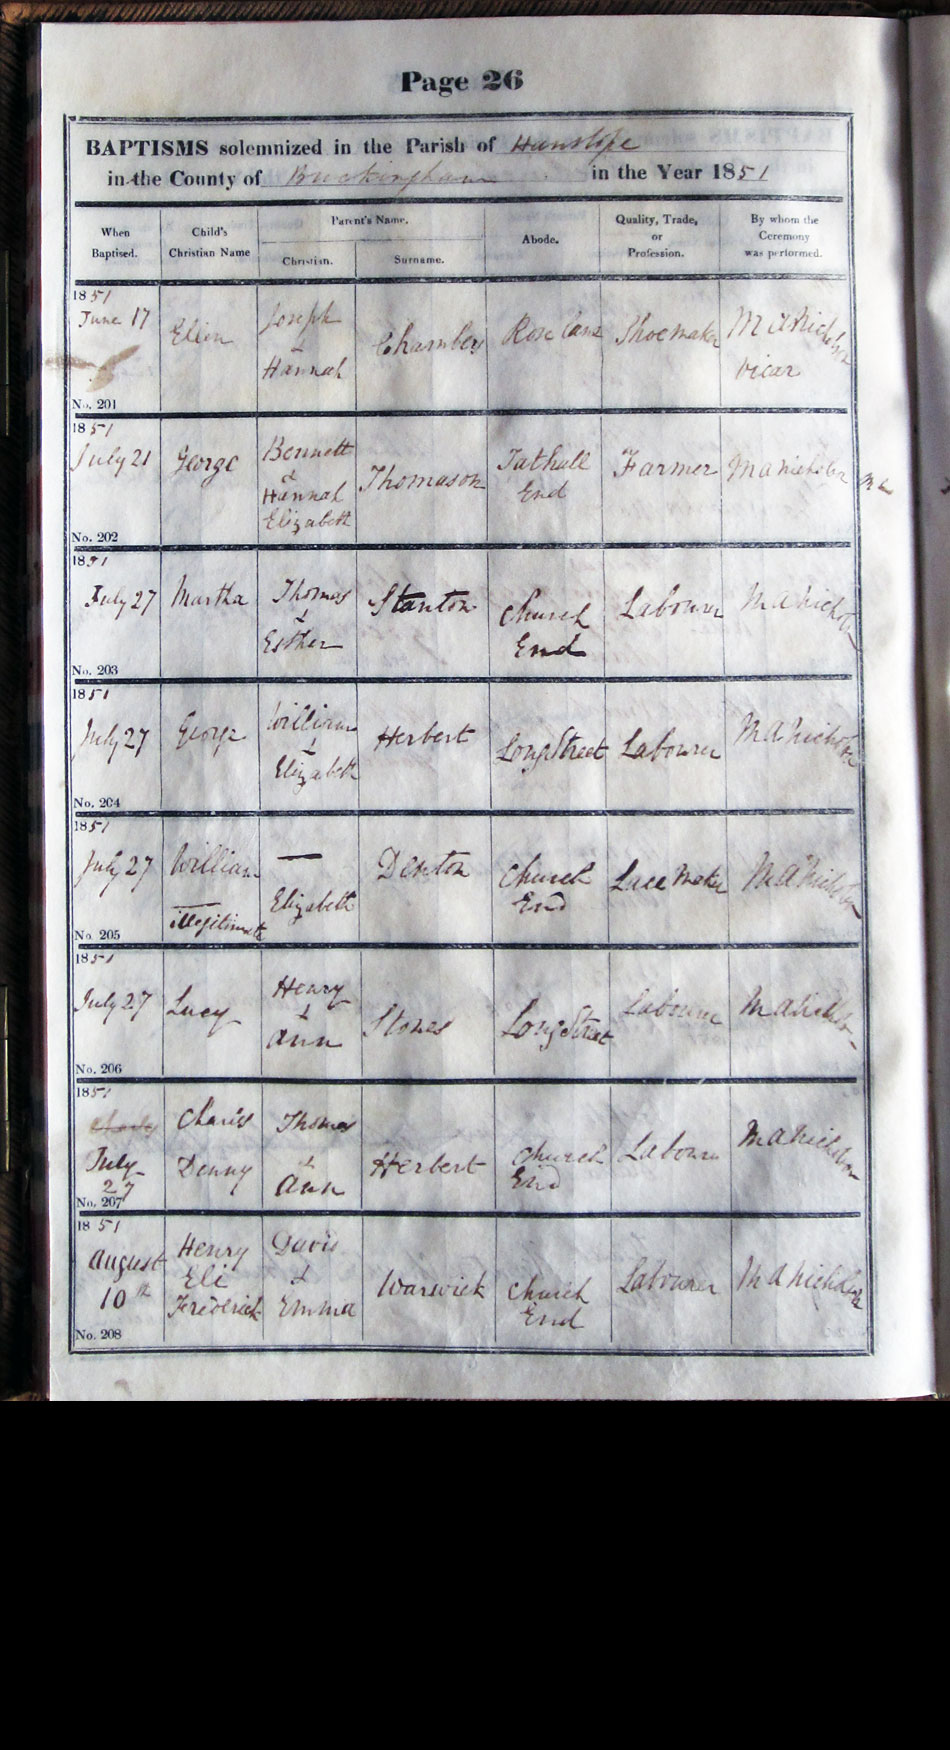 Page 26
BAPTISMS solemnized in the Parish of Hanslope
in the County of Buckingham in the Year 1851
When Baptised. Child's Christian Name Parent's Name. Christian. Surname. Abode. Quality, Trade, or Profession. By whom the Ceremony was performed.
1851
June 17 Ellen Joseph & Hannah Chambers Rose Lane Shoemaker M A Nicholson Vicar
No. 201
1851
July 21 George Bennett & Hannah Elizabeth Thomason Tathall End Farmer M A Nicholson
No. 202
1851
July 27 Martha Thomas & Esther Stanton Church End Labourer M A Nicholson
No. 203
1851
July 27 George William & Elizabeth Herbert Long Street Labourer M A Nicholson
No. 204
1851
July 27 William illegitimate — Elizabeth Denton Church End Lace Maker M A Nicholson
No. 205
1851
July 27 Lucy Henry & Ann Stones Long Street Labourer M A Nicholson
No. 206
1851
July 27 Denny Thomas & Ann Herbert Church End Labourer M A Nicholson
No. 207
1851
August 10th Henry Eli Frederick David & Emma Warwick Church End Labourer M A Nicholson
No. 208